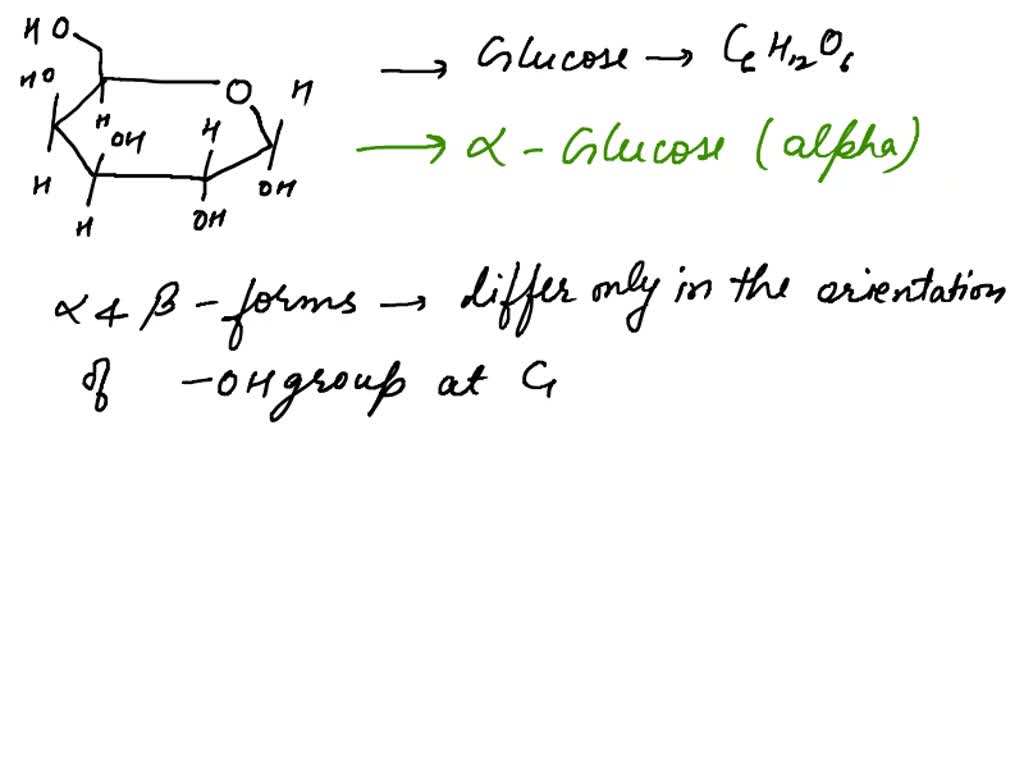 HO
HO
O
H
H
OH
H
H
H
OH
OH
→ Glucose → C6H12O6
→ α - Glucose (alpha)
α & β - forms → differ only in the orientation
of -OH group at C1